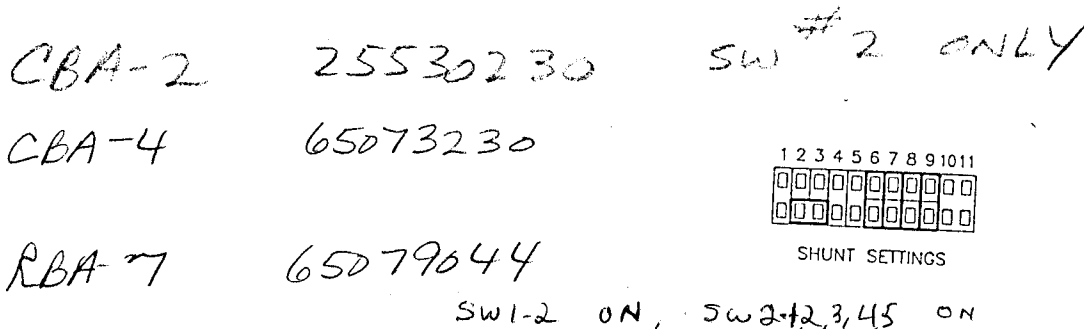 CBA-2 25530230 SW #2 ONLY
CBA-4 65073230
1 2 3 4 5 6 7 8 9 10 11
SHUNT SETTINGS
RBA-7 65079044
SW1-2 ON, SW2-12,3,45 ON